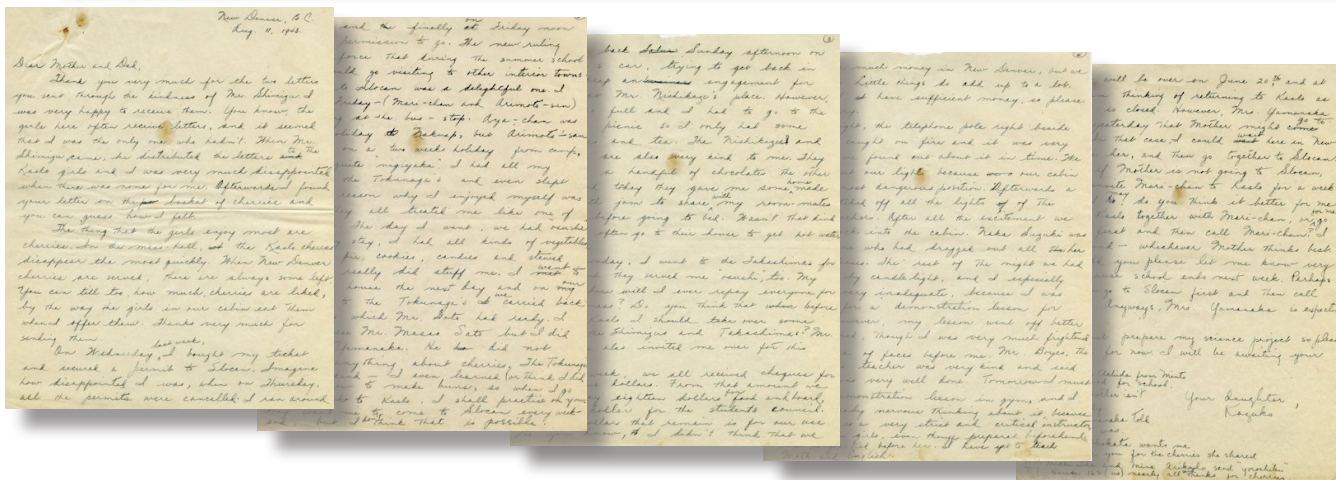 New Denver, B.C.
Aug. 11, 1943.
Dear Mother and Dad,
Thank you very much for the two letters
you sent through the kindness of Mr. Shimizu. I
was very happy to receive them. You know, the
girls here often receive letters, and it seemed
that I was the only one who hadn't. When Mr.
Shimizu came, he distributed the letters to the
Kaslo girls and I was very much disappointed
when there was none for me. Afterwards I found
your letter on the basket of cherries and
you can guess how I felt.
The thing that the girls enjoy most are
cherries. In the mess-hall, the Kaslo cherries
disappear the most quickly. When New Denver
cherries are served, there are always some left
You can tell too, how much cherries are liked,
by the way the girls in our cabin eat them
when I offer them. Thanks very much for
sending them.
On Wednesday, last week, I bought my ticket
and secured a permit to Slocan. Imagine
how disappointed I was, when on Thursday,
all the permits were cancelled. I ran around
and finally on Friday noon
permission to go. The new ruling
force that during the summer school
go visiting to other interior towns
to Slocan was a delightful one. I
Friday - (Mari-chan and Arimoto-san)
at the bus-stop. Aya-chan was
holiday Nakusp, but Arimoto-san
on a two week holiday from camp,
quite "nigiyaka" I had all my
the Tokunaga's and even slept
reason why I enjoyed myself was
all treated me like one of
The day I went, we had
stay, I had all kinds of vegetables
pie, cookies, candies and stewed
really did stuff me. I went to
house the next day and on our
to the Tokunaga's we carried back
which Mr. Sato had ready. I
Mr. Masao Sato but I did
Yamanaka. He did not
anything about cherries. The Tokunaga
I even learned (or think I did
to make buns, so when I go
to Kaslo, I shall practise on you
me to come to Slocan every week-
end, but I think that is possible!
back Sunday afternoon on
car, trying to get back in
engagement for
Mr. Nishikage's place. However,
full and I had to go to the
picnic so I only had some
and tea. The Nishikages and
are also very kind to me. They
a handful of chocolates the other
today they gave me some home made
jam to share with my room-mates
before going to bed. Wasn't that kind
often go to their house to get hot water
I went to the Takashimas for
they served me "sushi", too. My
how will I ever repay everyone for
? Do you think that when before
Kaslo I should take over some
the Shimizus and Takashimas? Mr.
also invited me over for this
we all received cheques for
dollars. From that amount we
eighteen dollars food and board,
dollar for the students council.
dollars that remain is for our use
know, I didn't think that we
much money in New Denver, but we
Little things do add up to a lot.
I have sufficient money, so please
the telephone pole right beside
caught on fire and it was very
found out about it in time. The
our lights because our cabin
most dangerous position. Afterwards a
all the lights of the
After all the excitement we
into the cabin. Neko Suzuki was
who had dragged out all her
The rest of the night we had
by candle light, and I especially
very inadequate, because I was
for a demonstration lesson for
my lesson went off better
though I was very much frightened
of faces before me. Mr. Boyes, the
teacher was very kind and said
very well done. Tomorrow I must
demonstration lesson in gym, and I
nervous thinking about it, because
is a very strict and critical instructor
girls, even though prepared beforehand
before her. I have yet to teach
Math and English.
will be over on June 20th and at
thinking of returning to Kaslo as
is closed. However, Mrs. Yamanaka
yesterday that Mother might go to
that case, I could wait here in New
her, and then go together to Slocan.
if Mother is not going to Slocan,
Mari-chan to Kaslo for a week
do you think it better for me
Kaslo together with Mari-chan, or go
first and then call Mari-chan? I
whichever Mother thinks best
you please let me know very
school ends next week. Perhaps
go to Slocan first and then call
Anyways, Mrs. Yamanaka is
prepare my science project so please
for now. I will be awaiting your
from Minto
for school.
Your daughter,
Kazuko
told
wants me
you for the cherries she shared
said "yoroshiku"
nearly all thanks for cherries.